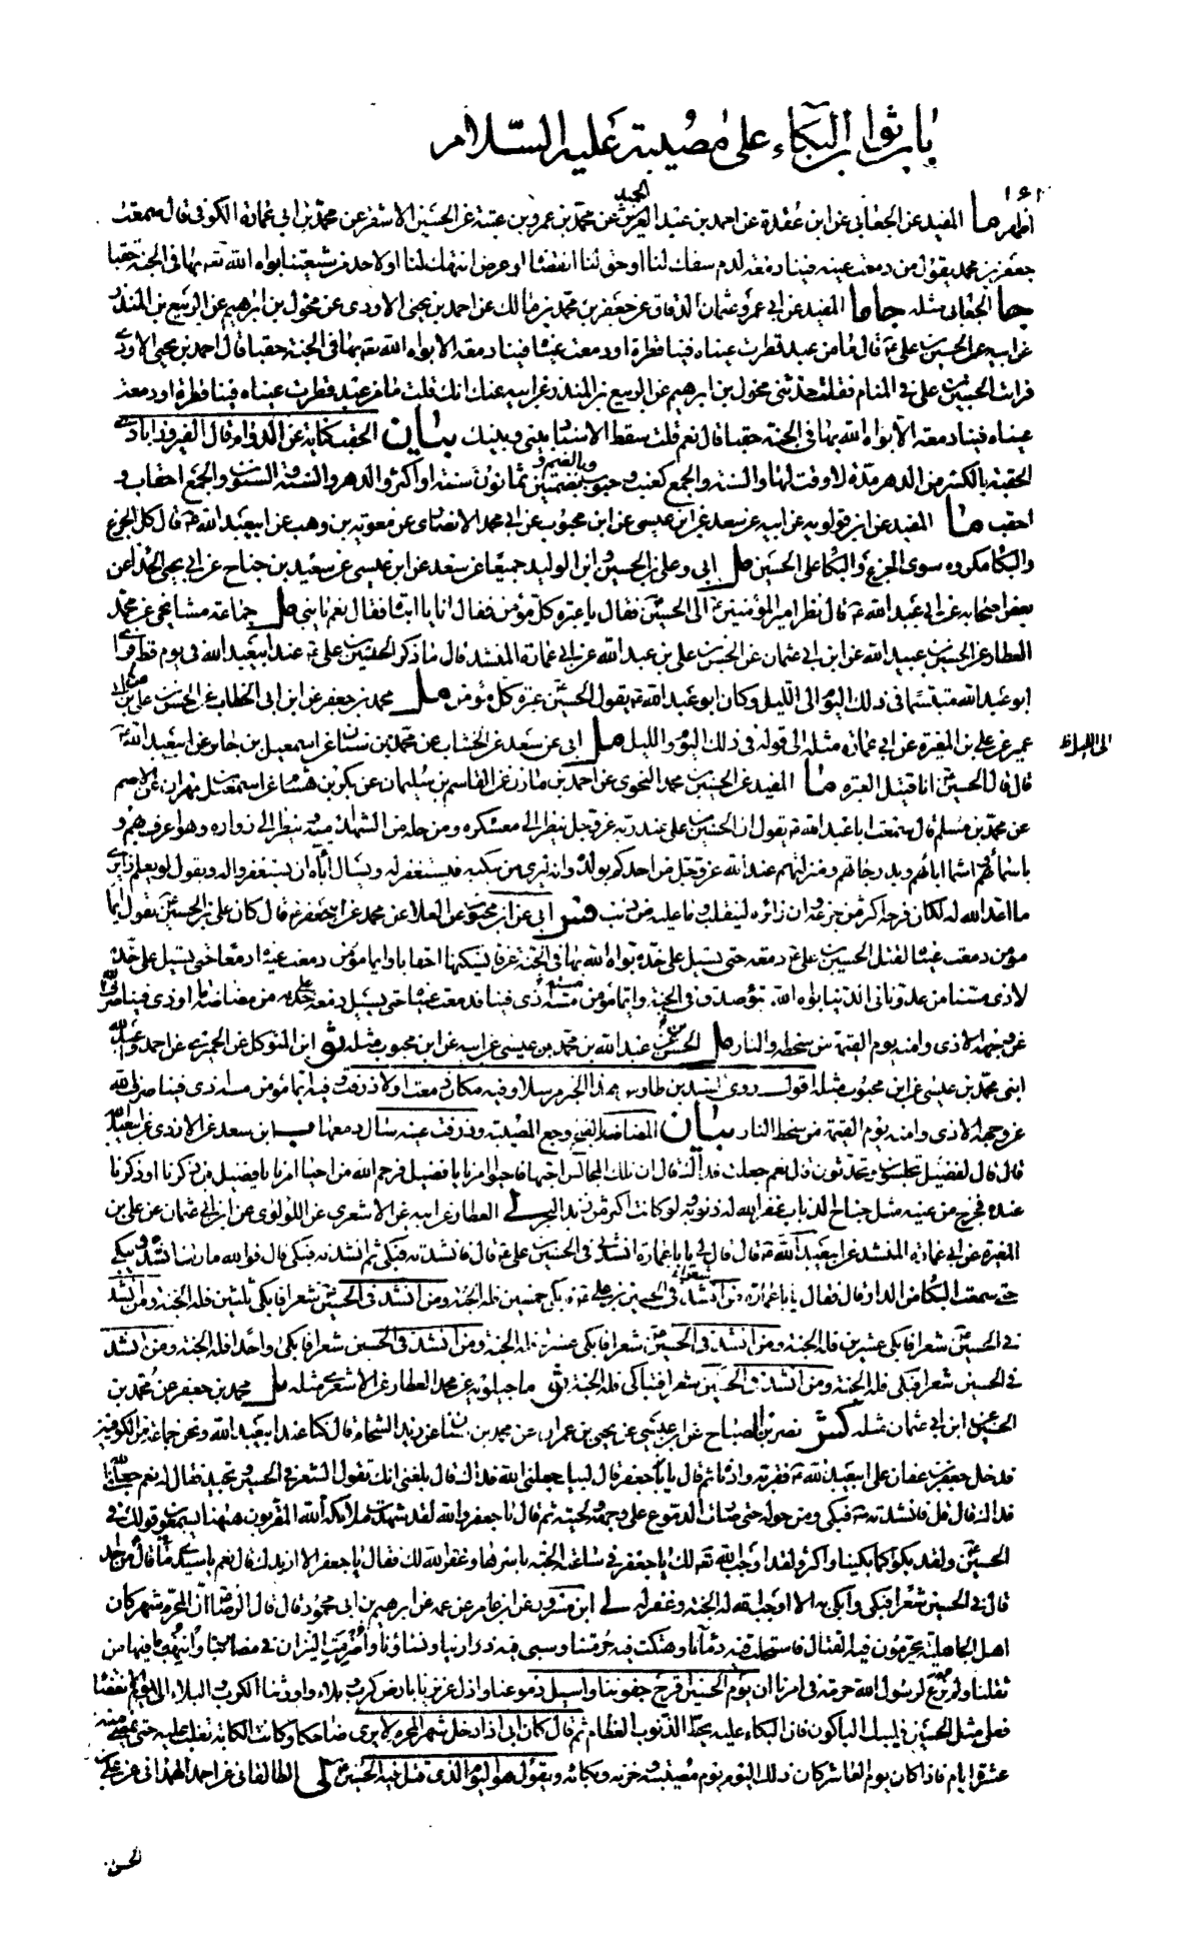 باب ثواب البكاء على مصيبته عليه السلام
ما المفيد عن الجعابي عن ابن عقدة عن احمد بن عبد الحميد عن محمد بن عمرو بن عتبة عن الحسين الاشقر عن محمد بن ابي عمارة الكوفي قال سمعت
جعفر بن محمد يقول من دمعت عينه فينا دمعة لدم سفك لنا او حق لنا انقصناه او عرض انتهك لنا او لاحد من شيعتنا بواه الله تعه بها في الجنة حقبا
جا الجعابي مثله جا ما المفيد عن ابي عمرو عثمان الدقاق عن جعفر بن محمد بن مالك عن احمد بن يحيى الاودي عن مخول بن ابراهيم عن الربيع بن المنذر
عن ابيه عن الحسين بن علي ع قال ما من عبد قطرت عيناه فينا قطرة او دمعت عيناه فينا دمعة الا بواه الله تعه بها في الجنة حقبا قال احمد بن يحيى الاودي
فرايت الحسين بن علي في المنام فقلت حدثني مخول بن ابرهيم عن الربيع بن المنذر عن ابيه عنك انك قلت ما من عبد قطرت عيناه فينا قطرة او دمعت
عيناه فينا دمعة الا بواه الله بها في الجنة حقبا قال نعم قلت سقط الاسناد بيني وبينك بيان الحقب كناية عن الدوام قال الفيروزابادي
الحقبة بالكسر من الدهر مدة لا وقت لها والسنة والجمع كعنب وحبوب وبالضم وبضمتين ثمانون سنة او اكثر والدهر والسنة والسنون والجمع احقاب و
احقب ما المفيد عن ابن قولويه عن ابيه عن سعد عن ابن عيسى عن ابن محبوب عن ابي محمد الانصاري عن معوية بن وهب عن ابيعبد الله ع قال كل الجزع
والبكا مكروه سوى الجزع والبكا على الحسين مل ابي وعلي بن الحسين وابن الوليد جميعا عن سعد عن ابن عيسى عن سعيد بن جناح عن ابي يحيى الحذا عن
بعض اصحابه عن ابي عبد الله ع قال نظر امير المؤمنين ع الى الحسين فقال يا عبرة كل مؤمن فقال انا يا ابتاه فقال نعم يا بني مل جماعة مشايخي عن محمد
العطار عن الحسين بن عبيد الله عن ابن ابي عثمان عن الحسن بن علي بن عبد الله عن ابي عمارة المنشد قال ما ذكر الحسين بن علي ع عند ابيعبد الله في يوم قط فرأي
ابو عبد الله متبسما في ذلك اليوم الى الليل وكان ابو عبد الله ع يقول الحسين عبرة كل مؤمن مل محمد بن جعفر عن ابن ابي الخطاب عن الحسن بن علي بن
عمير عن علي بن المغيرة عن ابي عمارة مثله الى قوله في ذلك اليوم والليل مل ابي عن سعد عن الخشاب عن محمد بن سنان عن اسمعيل بن جابر عن ابيعبد الله ع
الى الليل ظ
قال قال الحسين انا قتيل العبرة ما المفيد عن الحسين بن محمد النحوي عن احمد بن مازن عن القاسم بن سليمان عن بكر بن هشام عن اسمعيل بن مهران عن الاصم
عن محمد بن مسلم قال سمعت ابا عبد الله ع يقول ان الحسين بن علي عند ربه عز وجل ينظر الى معسكره ومن حله من الشهداء معه وينظر الى زواره وهو اعرف بهم و
باسمائهم واسماء ابائهم وبدرجاتهم ومنزلتهم عند الله عز وجل من احدكم بولده وانه ليرى من يبكيه فيستغفر له ويسال اباه ان يستغفروا له ويقول لو يعلم زائري
ما اعد الله له لكان فرحه اكثر من جزعه وان زائره لينقلب وما عليه من ذنب فس ابي عن ابن محبوب عن العلا عن محمد عن ابيجعفر ع قال كان علي بن الحسين يقول ايما
مؤمن دمعت عيناه لقتل الحسين بن علي ع دمعة حتى تسيل على خده بواه الله بها في الجنة غرفا يسكنها احقابا وايما مؤمن دمعت عيناه دمعا حتى يسيل على خده
لاذى مسنا من عدونا في الدنيا بواه الله مبوء صدق في الجنة وايما مؤمن مسه اذى فينا فدمعت عيناه حتى يسيل دمعه على خديه من مضاضة ما اوذي فينا صرف الله
عن وجهه الاذى وامنه يوم القيمة من سخطه والنار مل الحسن بن عبد الله بن محمد بن عيسى عن ابيه عن ابن محبوب مثله ثو ابن المتوكل عن الحميري عن احمد وعبد الله
ابني محمد بن عيسى عن ابن محبوب مثله اقول روى السيد بن طاوس هذا الخبر مرسلا وفيه مكان دمعت اولا ذرفت وفيه ايما مؤمن مسه اذى فينا صرف الله
عن وجهه الاذى وامنه يوم القيمة من سخط النار بيان المضاضة بالفتح وجع المصيبة وذرفت عينه سال دمعها ب ابن سعد عن الازدي عن ابيعبد الله
قال قال لفضيل تجلسون وتحدثون قال نعم جعلت فداك قال ان تلك المجالس احبها فاحيوا امرنا يا فضيل فرحم الله من احيا امرنا يا فضيل من ذكرنا او ذكرنا
عنده فخرج من عينه مثل جناح الذباب غفر الله له ذنوبه ولو كانت اكثر من زبد البحر لي العطار عن ابيه عن الاشعري عن اللؤلؤي عن ابن ابي عثمان عن علي بن
المغيرة عن ابي عمارة المنشد عن ابيعبد الله ع قال قال لي يا با عمارة انشدني في الحسين بن علي ع قال فانشدته فبكى ثم انشدته فبكى قال فوالله ما زلت انشده ويبكي
حتى سمعت البكا من الدار قال فقال يا با عمارة من انشد في الحسين بن علي ع شعرا فابكى خمسين فله الجنة ومن انشد في الحسين شعرا فابكى ثلثين فله الجنة ومن انشد
في الحسين شعرا فابكى عشرين فله الجنة ومن انشد في الحسين شعرا فابكى عشرة فله الجنة ومن انشد في الحسين شعرا فابكى واحدا فله الجنة ومن انشد
في الحسين شعرا فبكى فله الجنة ومن انشد في الحسين شعرا فتباكى فله الجنة ثو ماجيلويه عن محمد العطار عن الاشعري مثله مل محمد بن جعفر عن محمد بن
الحسين عن ابن ابي عثمان مثله كش نصر بن الصباح عن ابن عيسى عن يحيى بن عمران عن محمد بن سنان عن زيد الشحام قال كنا عند ابيعبد الله ونحن جماعة من الكوفيين
فدخل جعفر بن عفان على ابيعبد الله ع فقربه وادناه ثم قال يا جعفر قال لبيك جعلني الله فداك قال بلغني انك تقول الشعر في الحسين وتجيد فقال له نعم جعلني الله
فداك قال قل فانشدته ع فبكى ومن حوله حتى صارت الدموع على وجهه ولحيته ثم قال يا جعفر والله لقد شهدت ملائكة الله المقربون ههنا يسمعون قولك في
الحسين ولقد بكوا كما بكينا واكثر ولقد اوجب الله تعه لك يا جعفر في ساعته الجنة باسرها وغفر الله لك فقال يا جعفر الا ازيدك قال نعم يا سيدي قال ما من احد
قال في الحسين شعرا فبكى وابكى به الا اوجب الله له الجنة وغفر له لي ابن مسرور عن ابن عامر عن عمه عن ابرهيم بن ابي محمود قال قال الرضا ان المحرم شهر كان
اهل الجاهلية يحرمون فيه القتال فاستحلت فيه دماؤنا وهتكت فيه حرمتنا وسبي فيه ذرارينا ونساؤنا واضرمت النيران في مضاربنا وانتهب ما فيها من
ثقلنا ولم ترع لرسول الله حرمة في امرنا ان يوم الحسين اقرح جفوننا واسبل دموعنا واذل عزيزنا بارض كرب وبلاء واورثنا الكرب البلاء الى يوم الانقضاء
فعلى مثل الحسين فليبك الباكون فان البكاء عليه يحط الذنوب العظام ثم قال كان ابي اذا دخل شهر المحرم لا يرى ضاحكا وكانت الكابة تغلب عليه حتى يمضي منه
عشرة ايام فاذا كان يوم العاشر كان ذلك اليوم يوم مصيبته وحزنه وبكائه ويقول هو اليوم الذي قتل فيه الحسين لي الطالقاني عن احمد الهمداني عن علي بن
الحسن